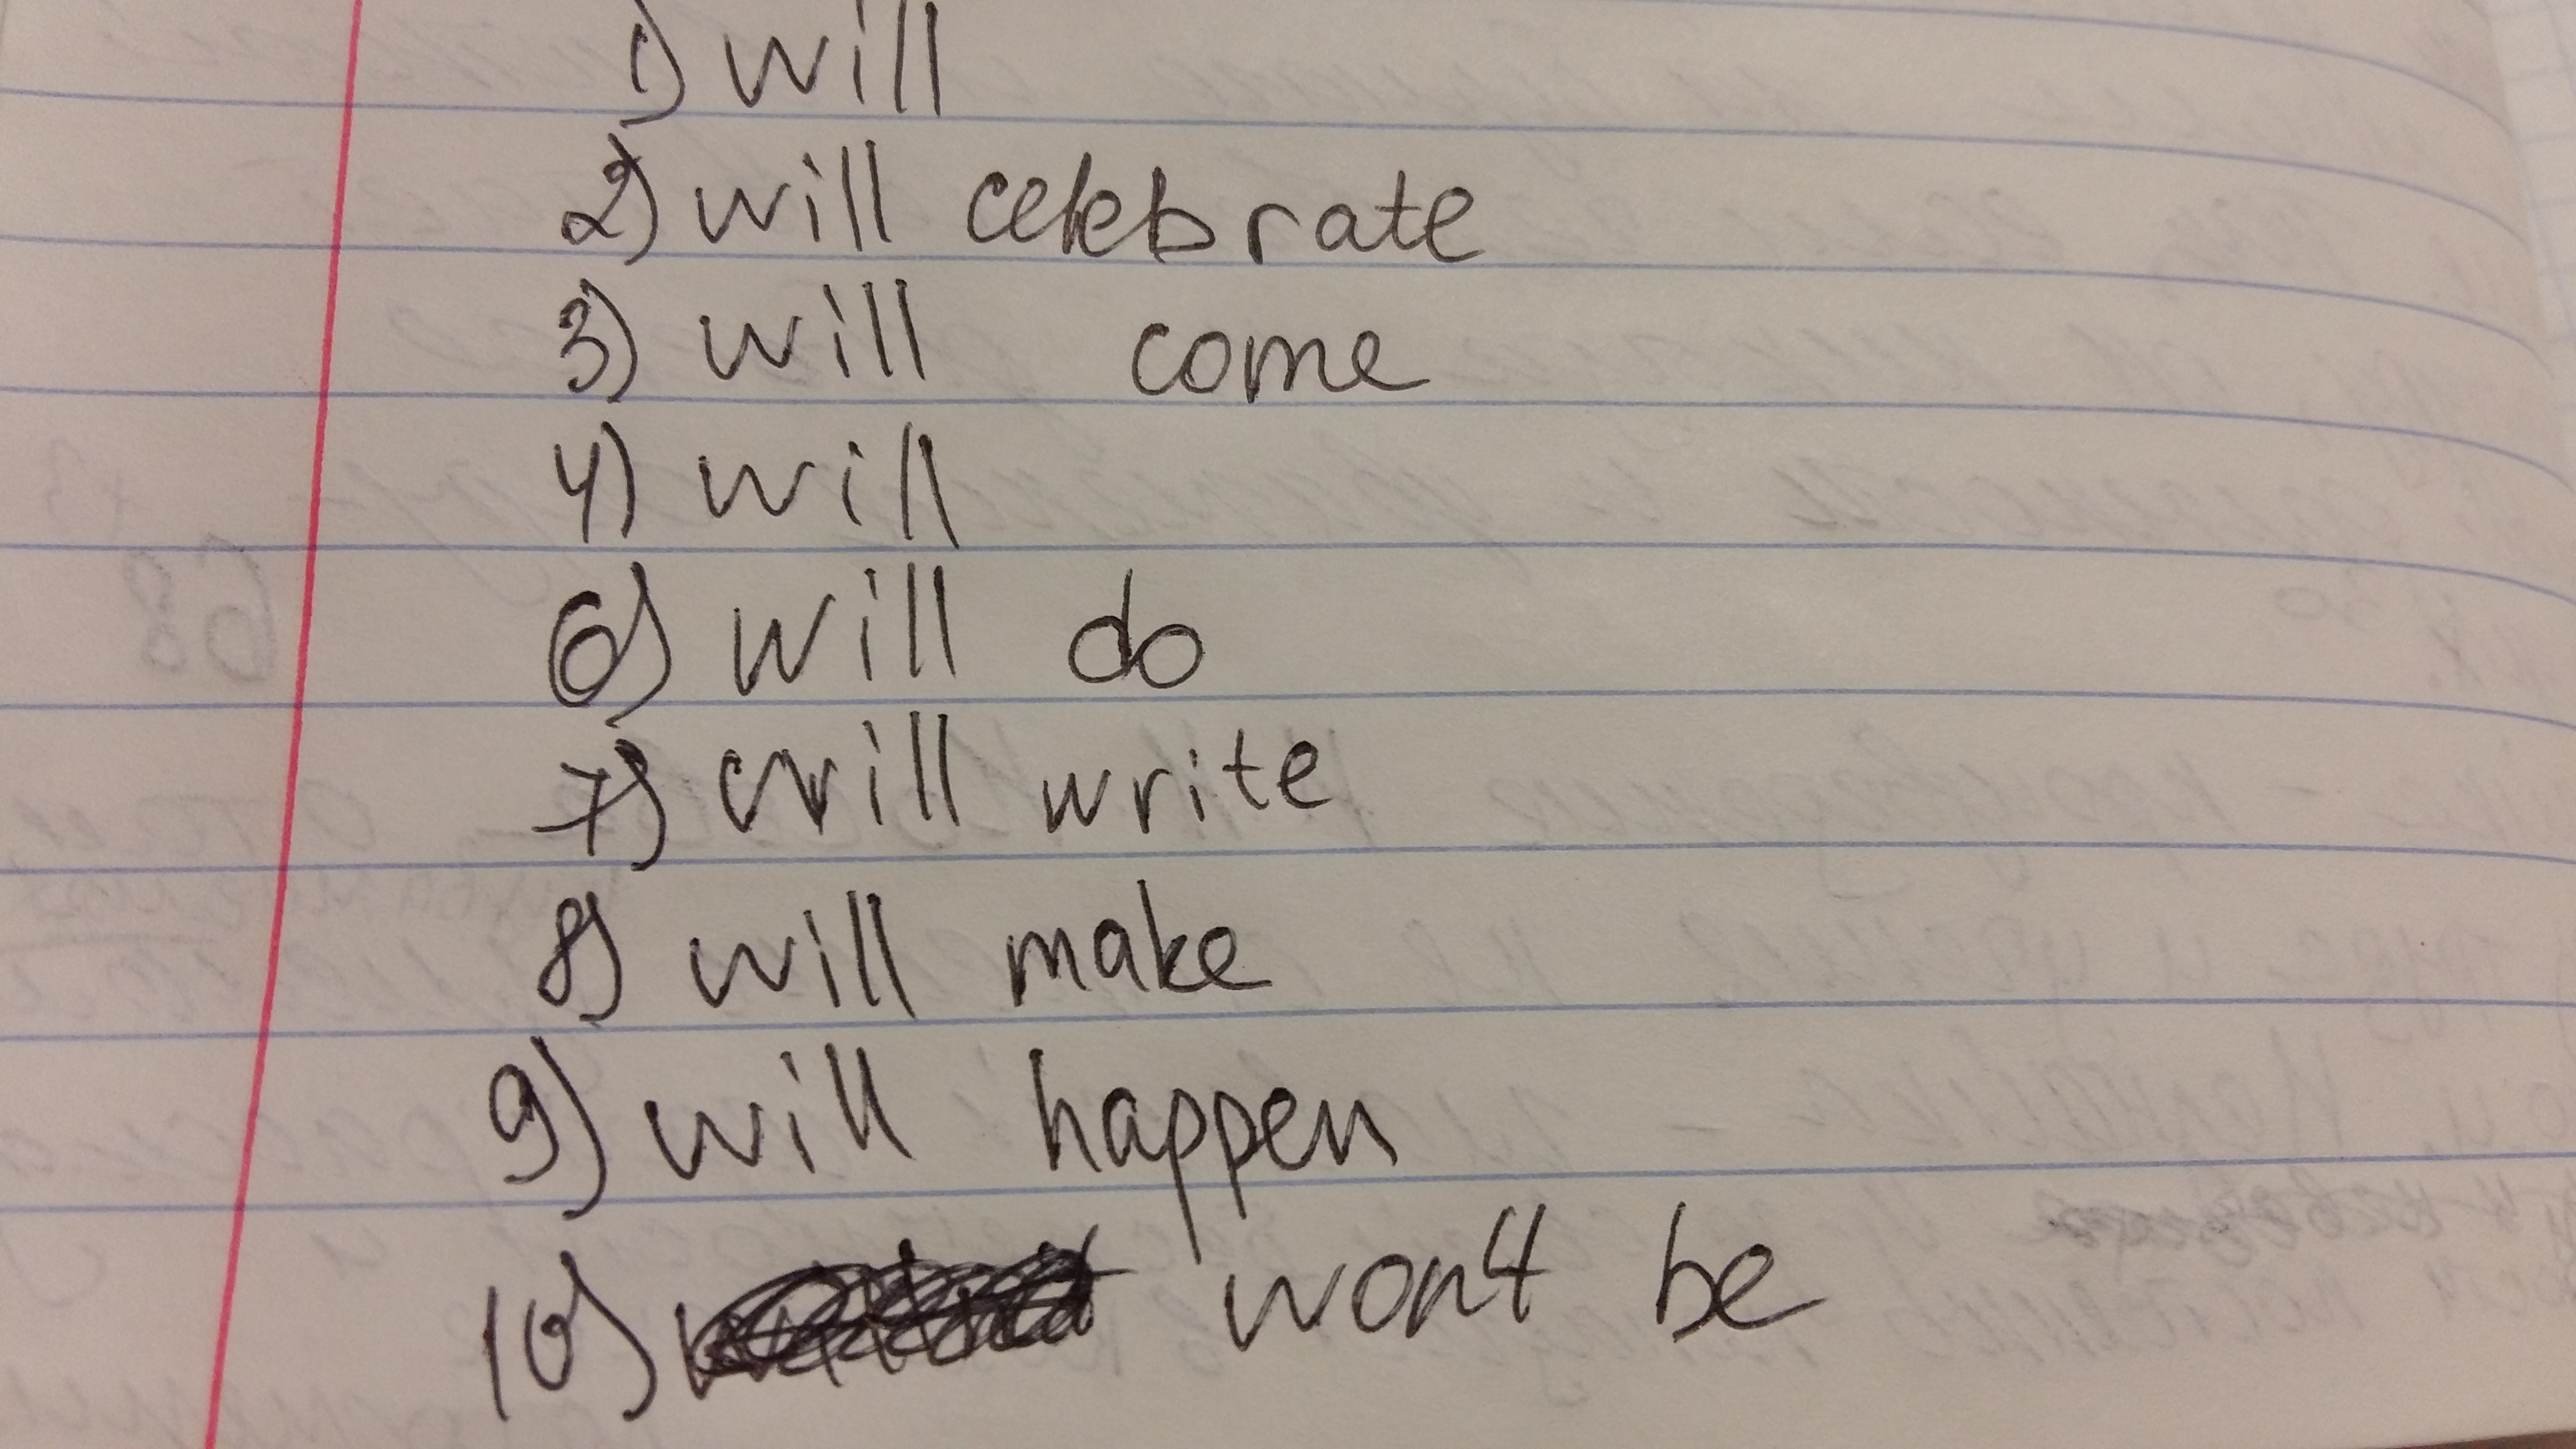 1) will
2) will celebrate
3) will come
4) will
6) will do
7) will write
8) will make
9) will happen
10) won't be